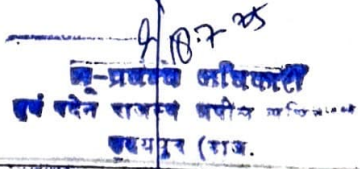 18.7.25
भू-प्रबन्ध अधिकारी
एवं पदेन राजस्व अपील
उदयपुर (राज.